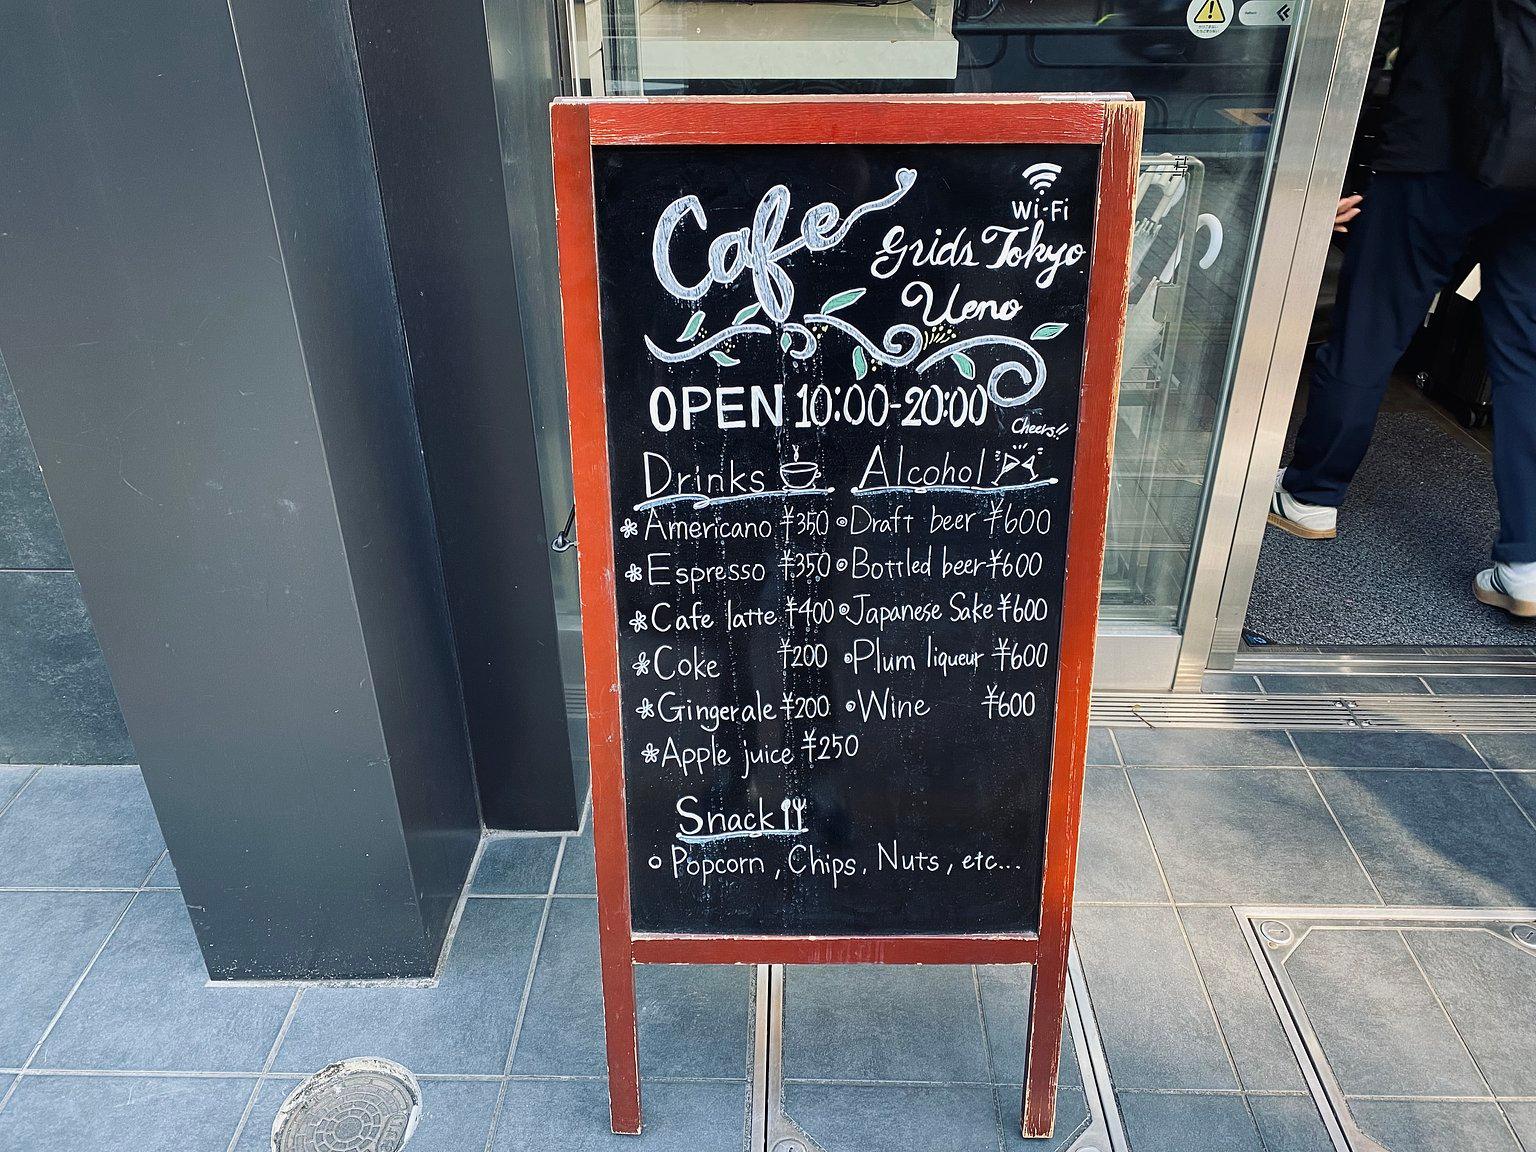 Cafe
Wi-Fi
Grids Tokyo
Ueno
OPEN 10:00-20:00
Cheers!!
Drinks
Americano ¥350
Espresso ¥350
Cafe latte ¥400
Coke ¥200
Gingerale ¥200
Apple juice ¥250
Alcohol
Draft beer ¥600
Bottled beer ¥600
Japanese Sake ¥600
Plum liqueur ¥600
Wine ¥600
Snack
Popcorn, Chips, Nuts, etc...